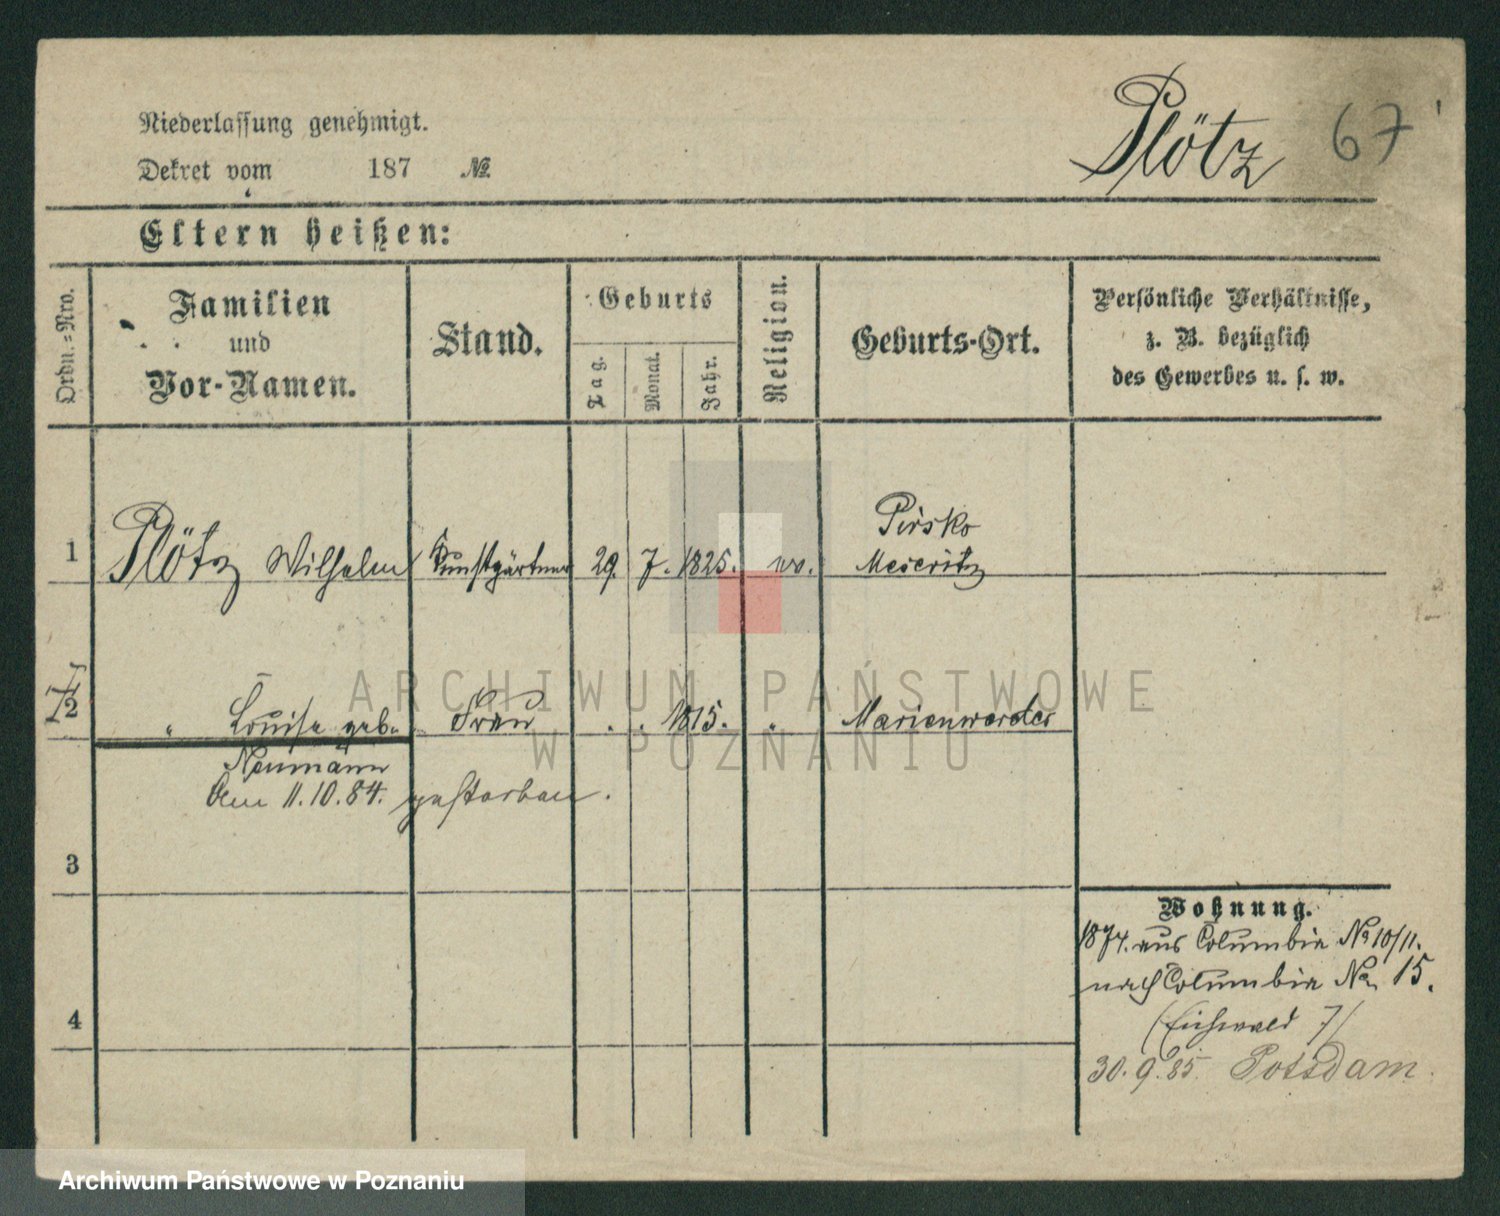 Niederlassung genehmigt.
Dekret vom 187 №
Plötz 67
Eltern heißen:
Ordn.=Nro.
Familien
und
Vor-Namen.
Stand.
Geburts
Tag.
Monat.
Jahr.
Religion.
Geburts-Ort.
Persönliche Verhältnisse,
z. B. bezüglich
des Gewerbes u. s. w.
Pirsko
1 Plötz Wilhelm Kunstgärtner 29. 7. 1825. ev. Meseritz
ARCHIWUM PAŃSTWOWE
W POZNANIU
2 " Louise geb. Frau . . 1815. " Marienwerder
Neumann
Am 11.10.84. gestorben.
3
4
Wohnung.
1874. aus Columbia № 10/11.
nach Columbia № 15.
(Eichwald 7/
30.9.85. Potsdam.
Archiwum Państwowe w Poznaniu